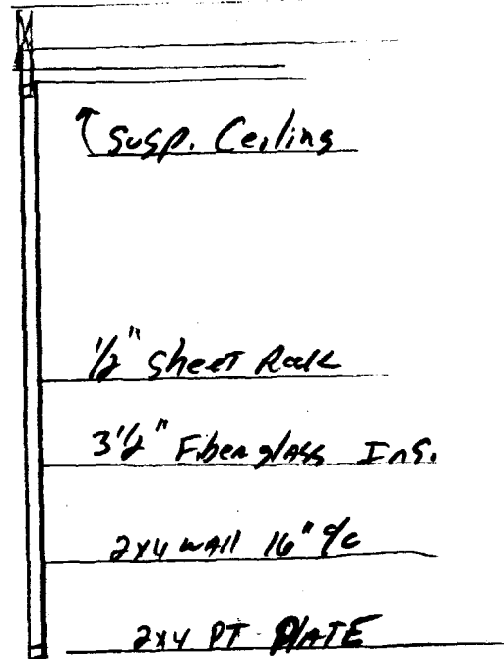 Susp. Ceiling
1/2" Sheet Rock
3 1/2" Fiberglass Ins.
2x4 WAll 16" o/c
2x4 PT PlATE